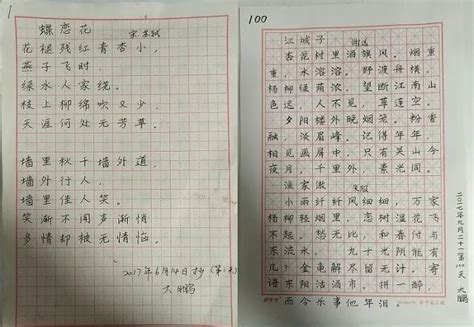 1
蝶恋花
宋 苏轼
花褪残红青杏小，
燕子飞时，
绿水人家绕。
枝上柳绵吹又少，
天涯何处无芳草。
墙里秋千墙外道，
墙外行人，
墙里佳人笑。
笑渐不闻声渐悄
多情却被无情恼。
2017年6月14日抄（第1天）
大鹏
100
江城子 谢逸
杏花村里酒旗风，烟重
重，水溶溶，野渡舟横，
杨柳绿荫浓，望断江南山
色远，人不见，草连空。
夕阳楼外晚烟笼，粉香
融，淡眉峰，记得年年，
相见画屏中，只有关山今
夜月，千里外，素光同。
渔家傲 朱服
小雨纤纤风细细，万家
杨柳轻烟里。恋树湿花飞
不起，愁无比，和春付与
东流水。 九十光阴能有
几？金龟解尽留无计，寄
语东阳沽酒市，拼一醉，
而今乐事他年泪。
二〇一七年九月二十一 大鹏